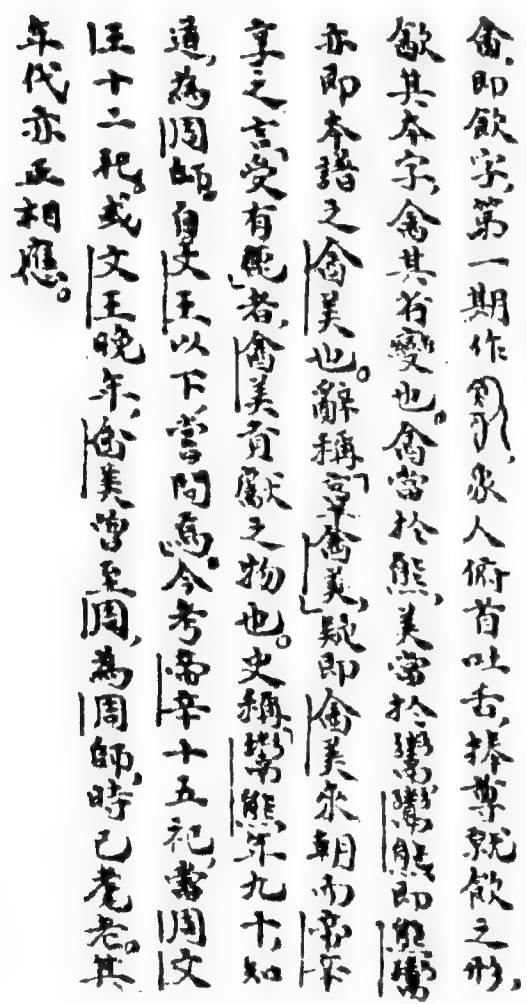 畬、即飲字、第一期作、象人俯首吐舌、捧尊就飲之形、
歙其本字、禽其省變也。禽當於熊、美當於鬻、鬻熊即熊鬻
亦即本譜之禽美也。辭稱「享禽美」、疑即禽美來朝而帝辛
享之、言「受有冕」者、禽美貢獻之物也。史稱「鬻熊年九十、知
道、為周師、自文王以下嘗問焉。」今考帝辛十五祀、當周文
王十二祀。或文王晚年、禽美嘗至周、為周師、時已耄老。其
年代亦正相應。